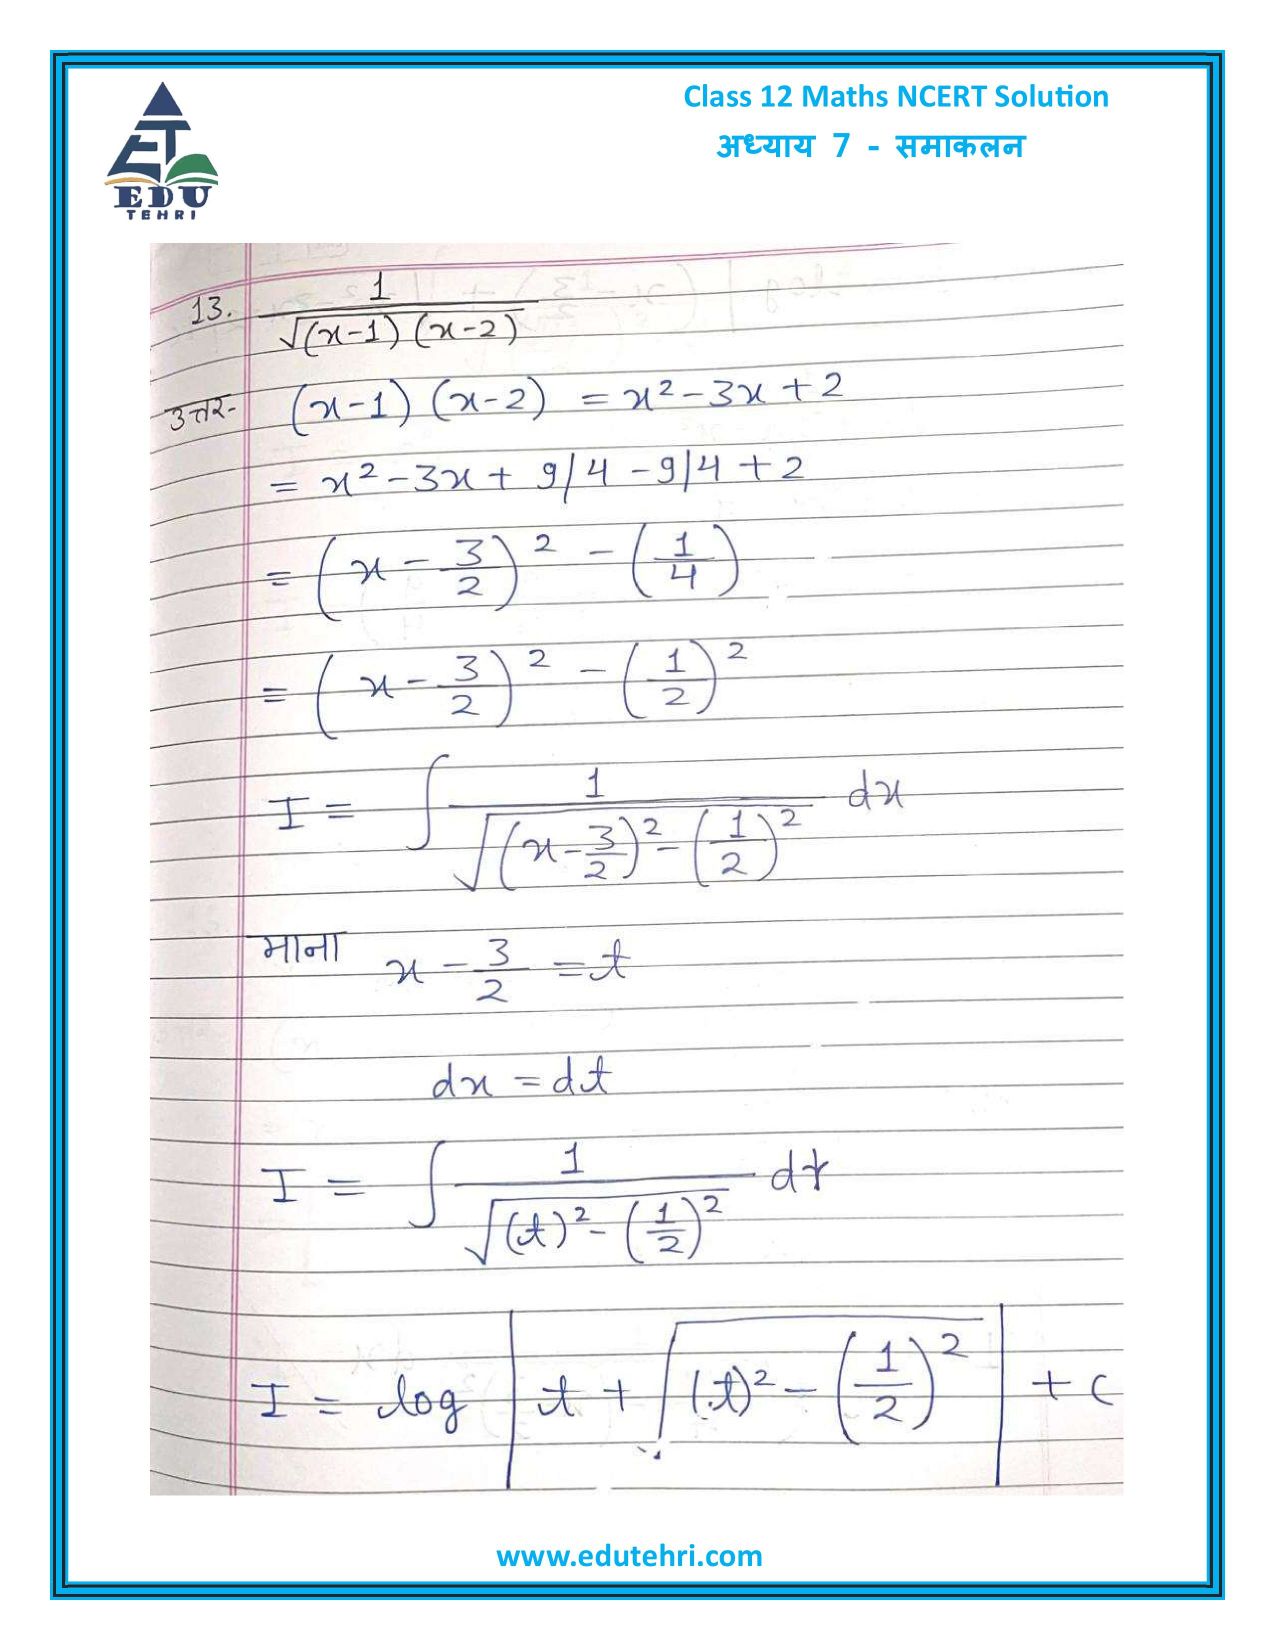 Class 12 Maths NCERT Solution
अध्याय 7 - समाकलन
ET
EDU
TEHRI
13. 1/√(x-1)(x-2)
उत्तर- (x-1)(x-2) = x² - 3x + 2
= x² - 3x + 9/4 - 9/4 + 2
= (x - 3/2)² - (1/4)
= (x - 3/2)² - (1/2)²
I = ∫ 1/√((x - 3/2)² - (1/2)²) dx
माना x - 3/2 = t
dx = dt
I = ∫ 1/√((t)² - (1/2)²) dt
I = log | t + √((t)² - (1/2)²) | + c
www.edutehri.com